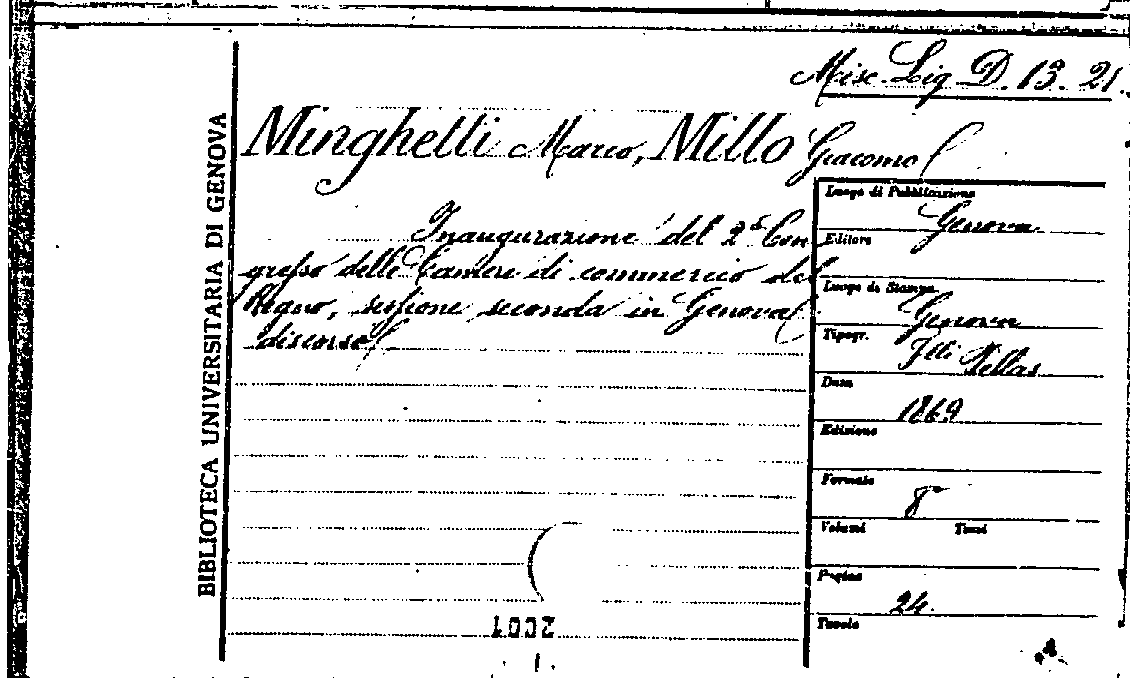 Misc. Lig. D. 13. 21.
Minghetti Marco, Millo Giacomo
Inaugurazione del 2° Con
gresso delle Camere di commercio del
Regno, sessione seconda in Genova
discorso
BIBLIOTECA UNIVERSITARIA DI GENOVA
Luogo di Pubblicazione
Genova
Editore
Luogo di Stampa
Genova
Tipogr.
Flli Pellas
Data
1869
Edizione
Formato
8°
Volumi Tomi
Pagine
24.
Tavole
2001